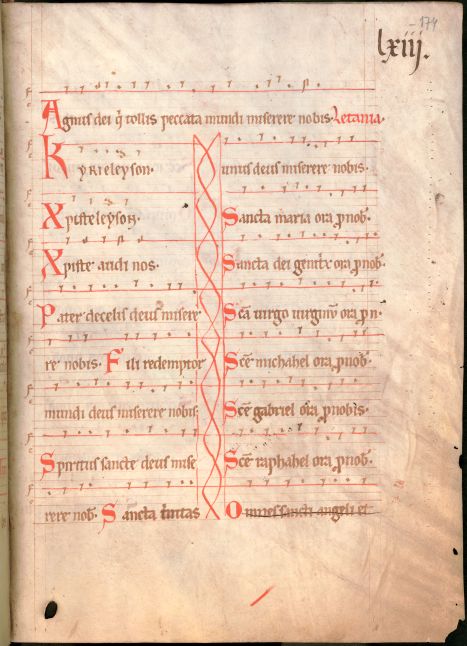 174
lxiij.
Agnus dei q̄ tollis peccata mundi miserere nobis. Letania.
Kyrieleyson.
Xpisteleyson.
Xpiste audi nos.
Pater de celis deus misere
re nobis. Fili redemptor
mundi deus miserere nobis.
Spiritus sancte deus mise
rere nob̄. Sancta t̄nitas
unus deus miserere nobis.
Sancta maria ora ꝓ nob̄.
Sancta dei genitx̄ ora ꝓ nob̄.
Sc̄a virgo virginū ora ꝓ n.
Sc̄e michahel ora ꝓ nob̄.
Sc̄e gabriel ora ꝓ nobis.
Sc̄e raphahel ora ꝓ nob̄.
Omnes sancti angeli et